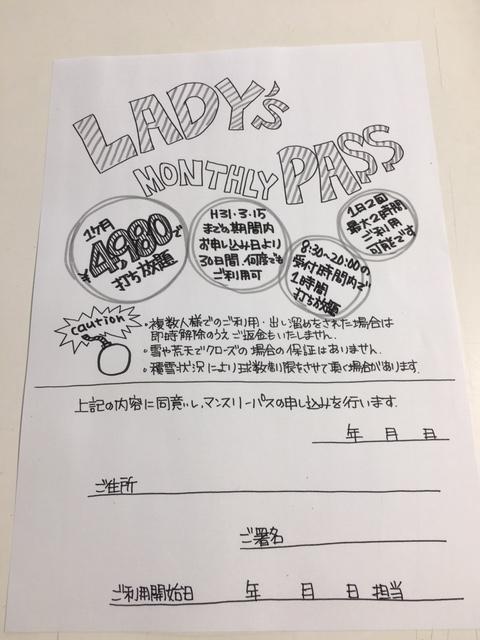 LADY's
MONTHLY PASS
1ヶ月
¥4,980で
打ち放題
H31.3.15
までの期間内
お申し込み日より
30日間、何度でも
ご利用可
8:30~20:00の
受付時間内で
1時間
打ち放題
1日2回
最大2時間
ご利用
可能です
caution
・複数人様でのご利用・出し溜めをされた場合は
即時解除のうえご返金もいたしません.
・雪や荒天でクローズの場合の保証はありません.
・積雪状況により球数制限をさせて頂く場合があります.
上記の内容に同意いし、マンスリーパスの申し込みを行います.
年 月 日
ご住所
ご署名
ご利用開始日 年 月 日 担当